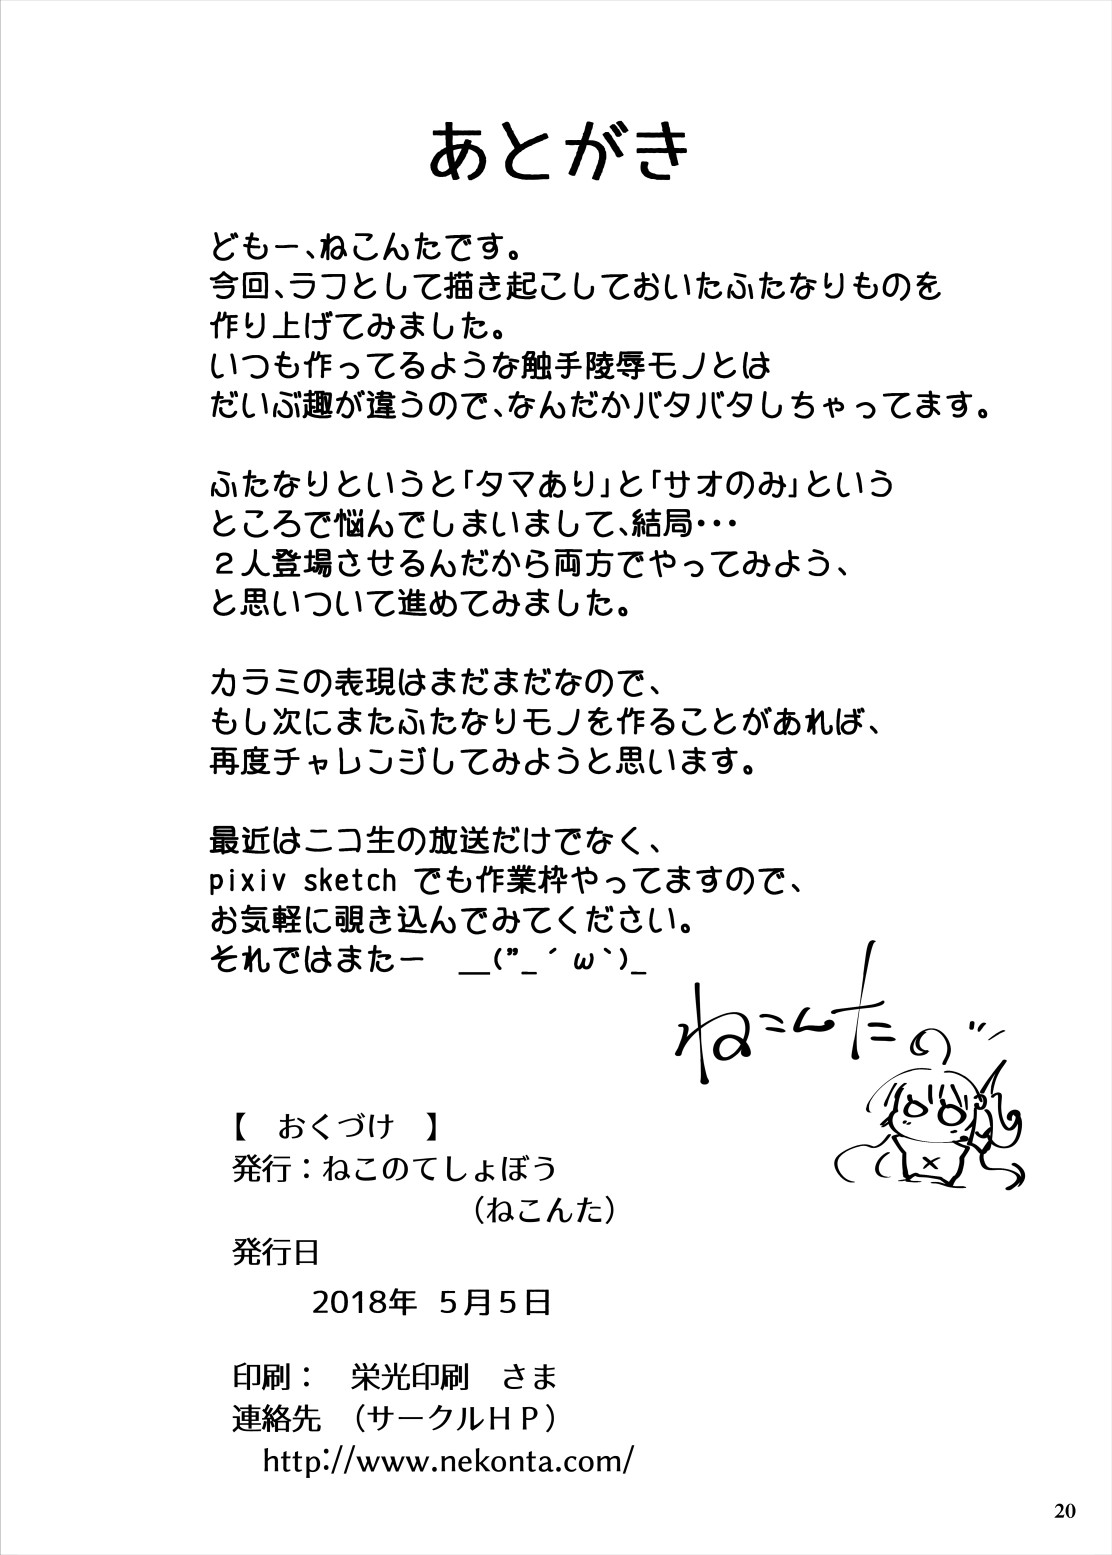 あとがき
どもー、ねこんたです。
今回、ラフとして描き起こしておいたふたなりものを
作り上げてみました。
いつも作ってるような触手陵辱モノとは
だいぶ趣が違うので、なんだかバタバタしちゃってます。
ふたなりというと「タマあり」と「サオのみ」という
ところで悩んでしまいまして、結局・・・
２人登場させるんだから両方でやってみよう、
と思いついて進めてみました。
カラミの表現はまだまだなので、
もし次にまたふたなりモノを作ることがあれば、
再度チャレンジしてみようと思います。
最近はニコ生の放送だけでなく、
pixiv sketch でも作業枠やってますので、
お気軽に覗き込んでみてください。
それではまたー　__("_´ω`)_
ねこんた
【　おくづけ　】
発行：ねこのてしょぼう
（ねこんた）
発行日
2018年 ５月５日
印刷：　栄光印刷　さま
連絡先　（サークルＨＰ）
http://www.nekonta.com/
20